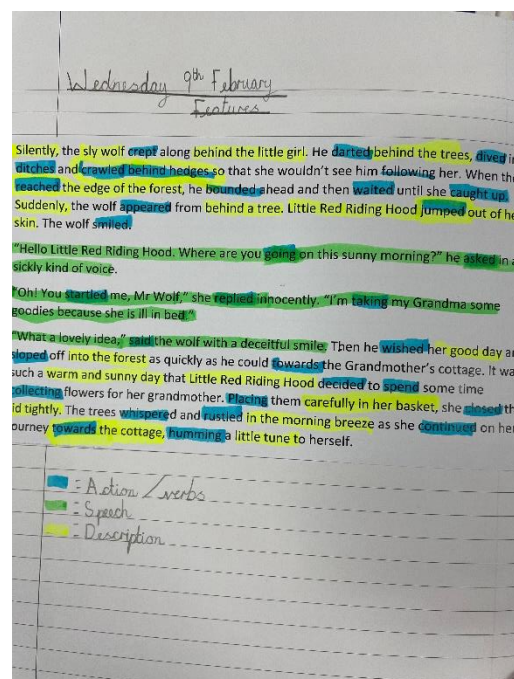 Wednesday 9th February
Features
Silently, the sly wolf crept along behind the little girl. He darted behind the trees, dived in
ditches and crawled behind hedges so that she wouldn't see him following her. When the
reached the edge of the forest, he bounded ahead and then waited until she caught up.
Suddenly, the wolf appeared from behind a tree. Little Red Riding Hood jumped out of he
skin. The wolf smiled.
"Hello Little Red Riding Hood. Where are you going on this sunny morning?" he asked in a
sickly kind of voice.
"Oh! You startled me, Mr Wolf," she replied innocently. "I'm taking my Grandma some
goodies because she is ill in bed."
"What a lovely idea," said the wolf with a deceitful smile. Then he wished her good day an
sloped off into the forest as quickly as he could towards the Grandmother's cottage. It wa
such a warm and sunny day that Little Red Riding Hood decided to spend some time
collecting flowers for her grandmother. Placing them carefully in her basket, she closed th
id tightly. The trees whispered and rustled in the morning breeze as she continued on her
ourney towards the cottage, humming a little tune to herself.
= Action / verbs
= Speech
= Description